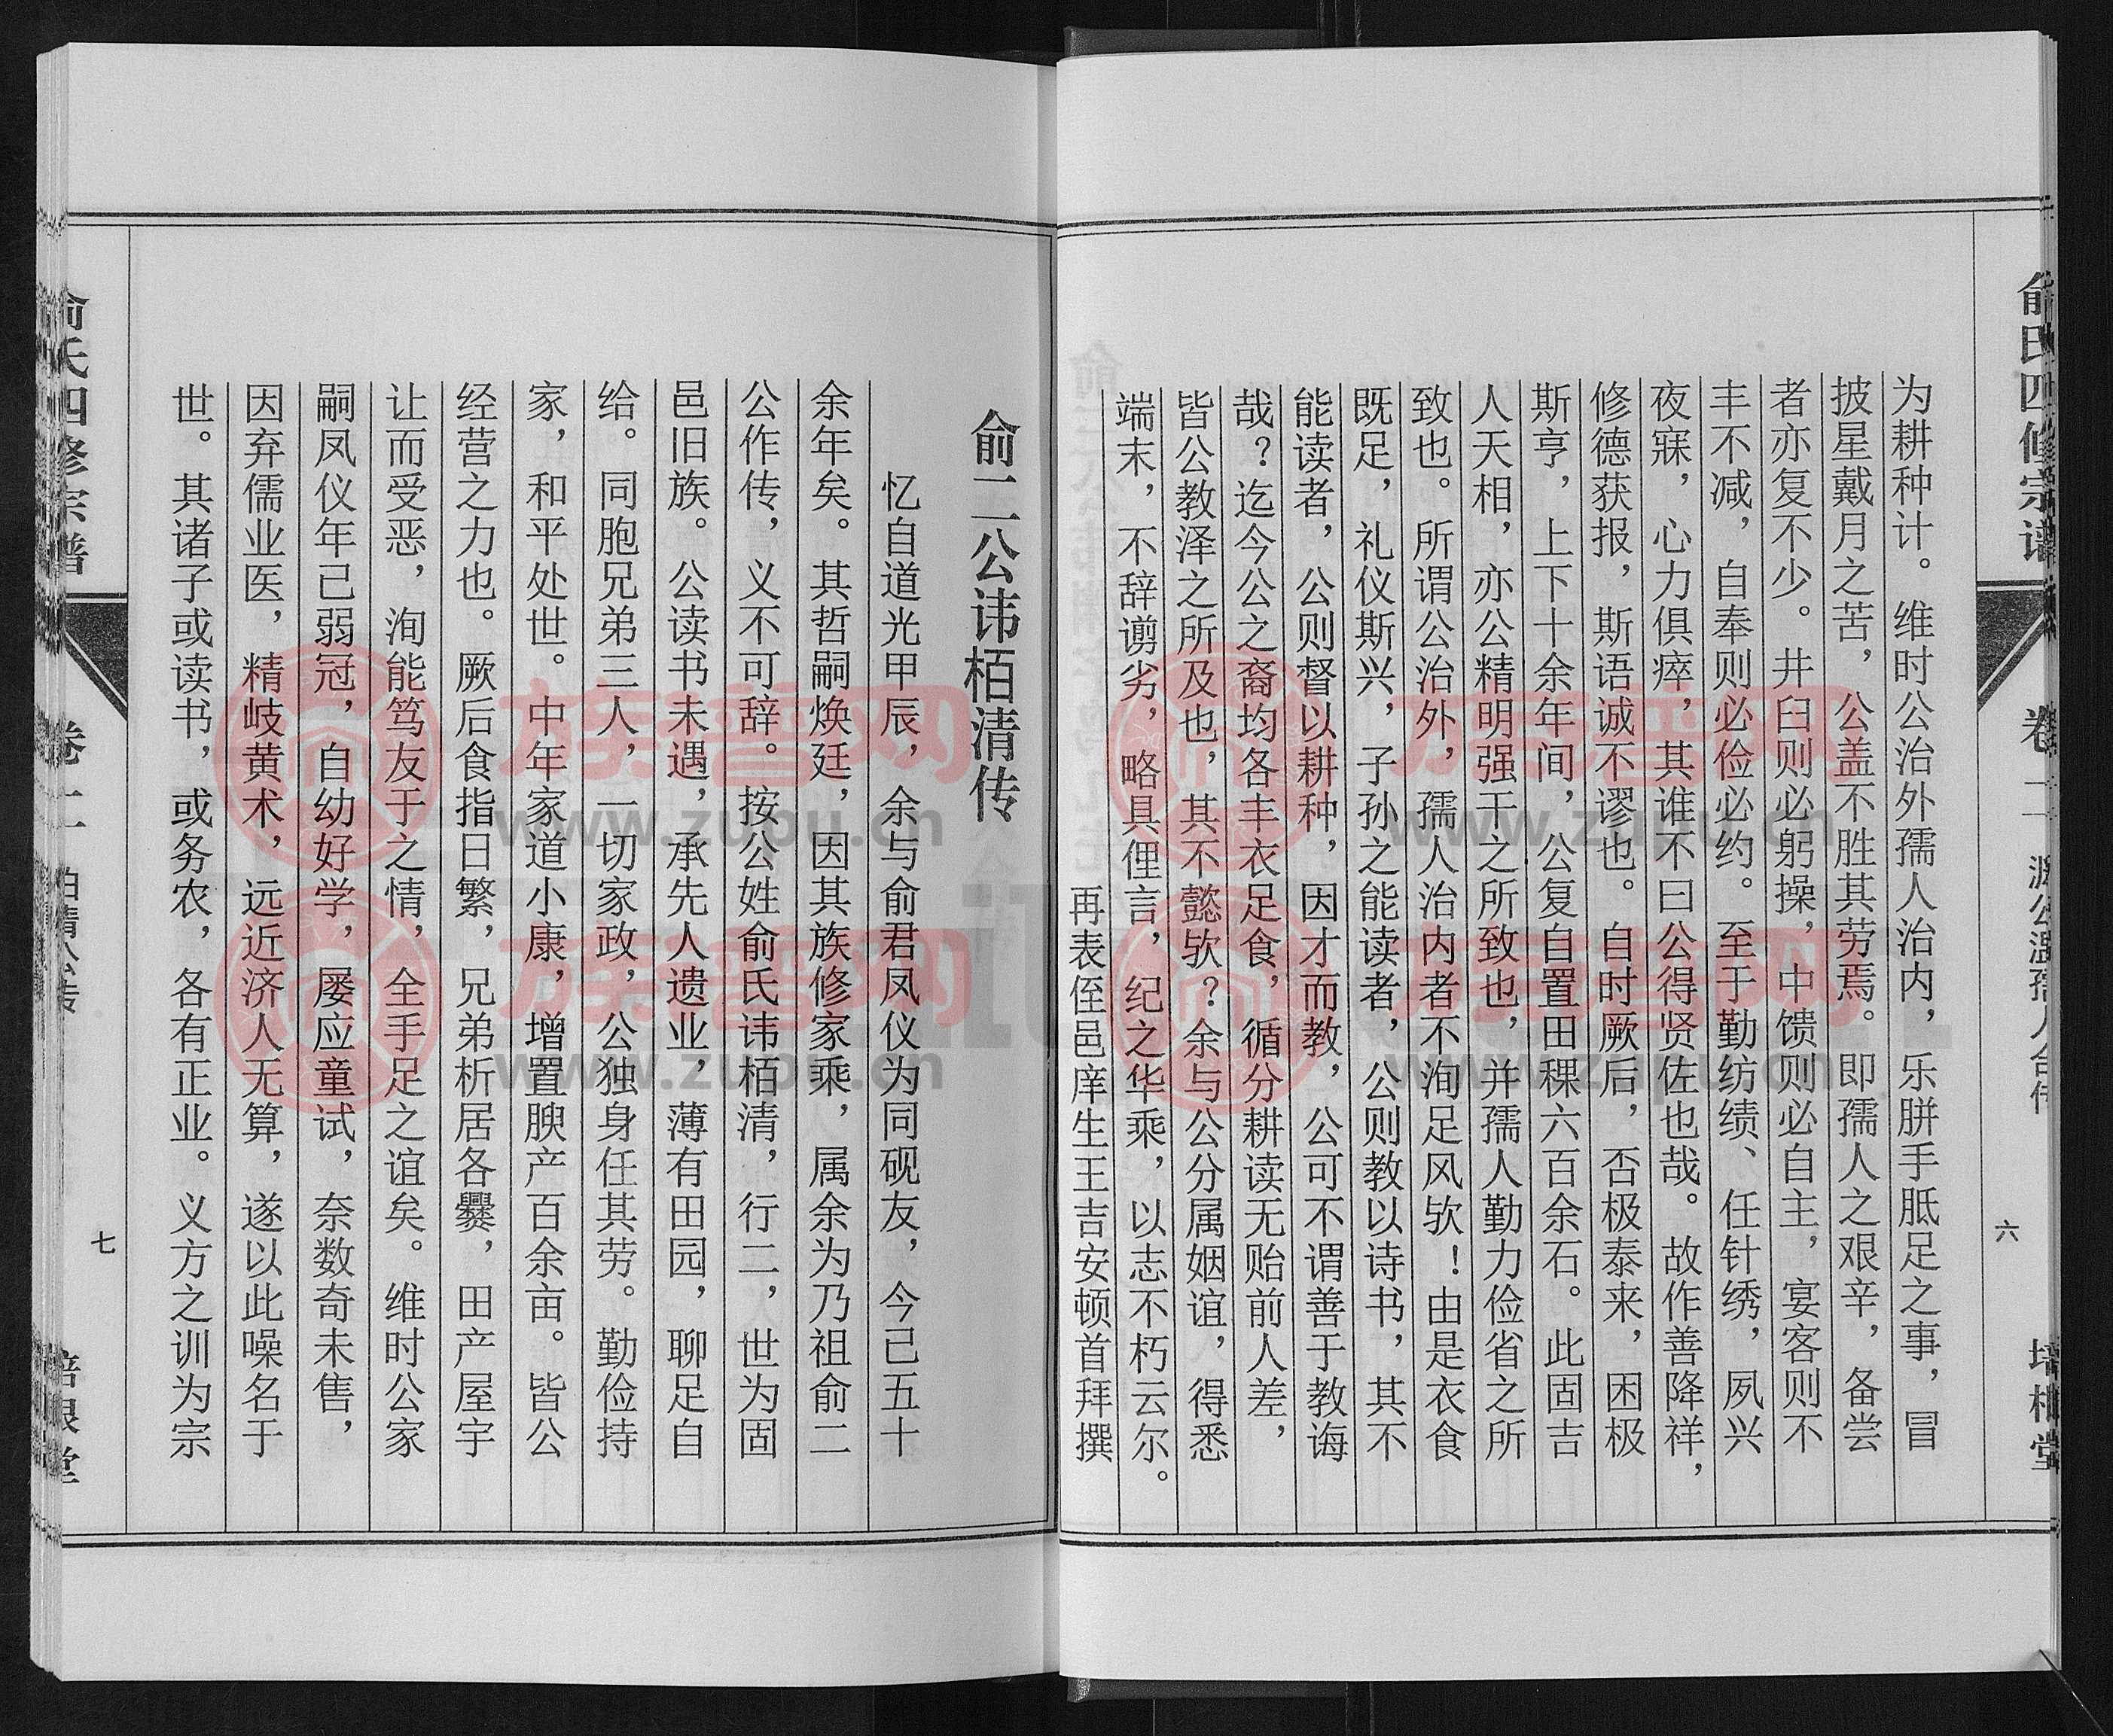 俞氏四修宗谱
卷二
六
培根堂
为耕种计。维时公治外孺人治内，乐胼手胝足之事，冒
披星戴月之苦，公盖不胜其劳焉。即孺人之艰辛，备尝
者亦复不少。井臼则必躬操，中馈则必自主，宴客则不
丰不减，自奉则必俭必约。至于勤纺绩、任针绣，夙兴
夜寐，心力俱瘁，其谁不曰公得贤佐也哉。故作善降祥，
修德获报，斯语诚不谬也。自时厥后，否极泰来，困极
斯亨，上下十余年间，公复自置田稞六百余石。此固吉
人天相，亦公精明强干之所致也，并孺人勤力俭省之所
致也。所谓公治外，孺人治内者不洵足风欤！由是衣食
既足，礼仪斯兴，子孙之能读者，公则教以诗书，其不
能读者，公则督以耕种，因才而教，公可不谓善于教诲
哉？迄今公之裔均各丰衣足食，循分耕读无贻前人差，
皆公教泽之所及也，其不懿欤？余与公分属姻谊，得悉
端末，不辞谫劣，略具俚言，纪之华乘，以志不朽云尔。
再表侄邑庠生王吉安顿首拜撰
俞二公讳栢清传
忆自道光甲辰，余与俞君凤仪为同砚友，今已五十
余年矣。其哲嗣焕廷，因其族修家乘，属余为乃祖俞二
公作传，义不可辞。按公姓俞氏讳栢清，行二，世为固
邑旧族。公读书未遇，承先人遗业，薄有田园，聊足自
给。同胞兄弟三人，一切家政，公独身任其劳。勤俭持
家，和平处世。中年家道小康，增置腴产百余亩。皆公
经营之力也。厥后食指日繁，兄弟析居各爨，田产屋宇
让而受恶，洵能笃友于之情，全手足之谊矣。维时公家
嗣凤仪年已弱冠，自幼好学，屡应童试，奈数奇未售，
因弃儒业医，精岐黄术，远近济人无算，遂以此噪名于
世。其诸子或读书，或务农，各有正业。义方之训为宗
俞氏四修宗谱
卷二
柏清公传
七
培根堂
族谱网
www.zupu.cn
族谱网
www.zupu.cn
族谱网
www.zupu.cn
族谱网
www.zupu.cn